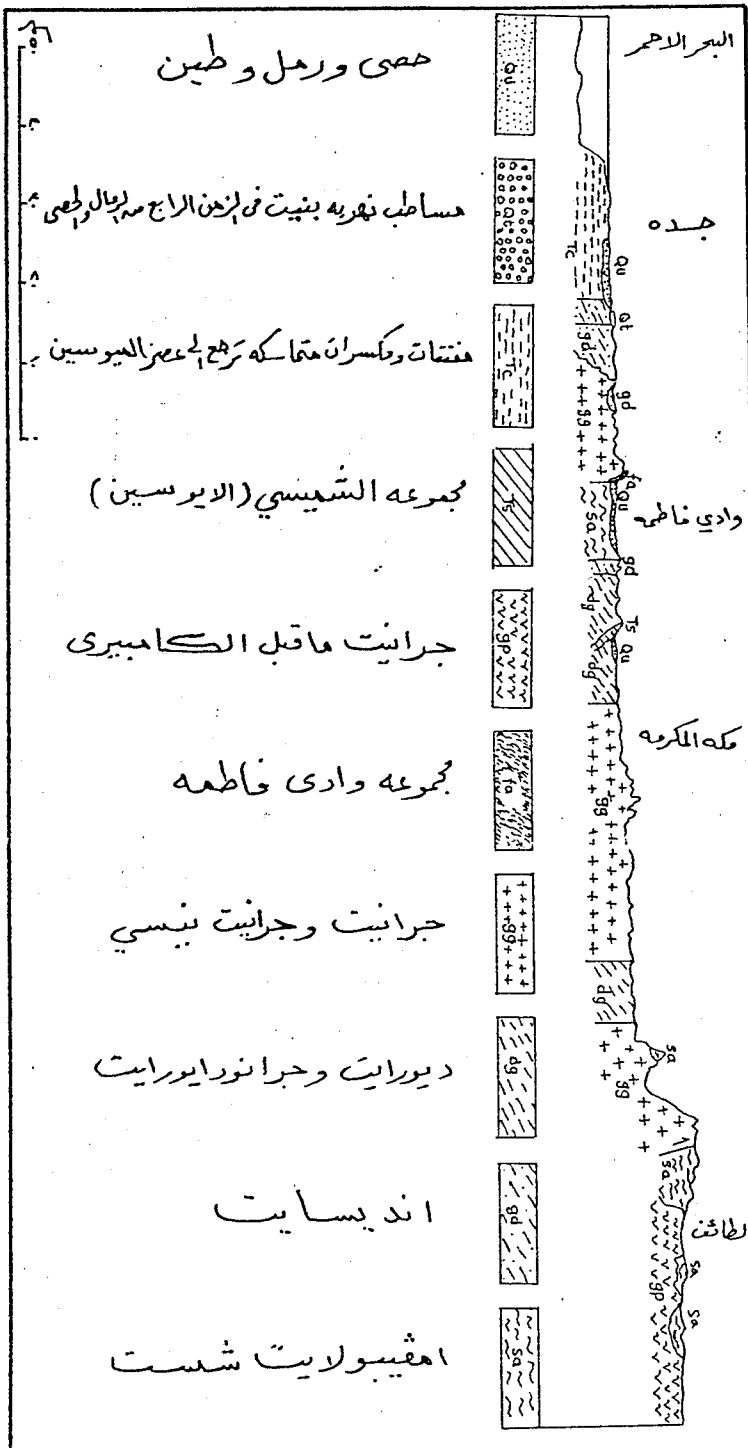 البحر الاحمر
جده
وادي فاطمه
مكه المكرمه
لطائف
حصى ورمل وطين
Qu
مساطب نهريه بنيت في الزمن الرابع من الرمال والحصى
Qt
مفتتات ومكسرات متماسكه ترجع الى عصر الميوسين
Tc
مجموعه الشميسي (الايوسين)
Ts
جرانيت ماقبل الكامبيرى
gp
مجموعه وادى فاطمه
fa
جرانيت وجرانيت نيسي
gg
ديورايت وجرانودايورايت
dg
انديسايت
gd
امفيبولايت شست
sa
Qu
Tc
Qt
gd
gd
gg
fa
Qu
sa
gd
dg
Ts
Qu
dg
gg
dg
sa
gg
sa
sa
gp
sa